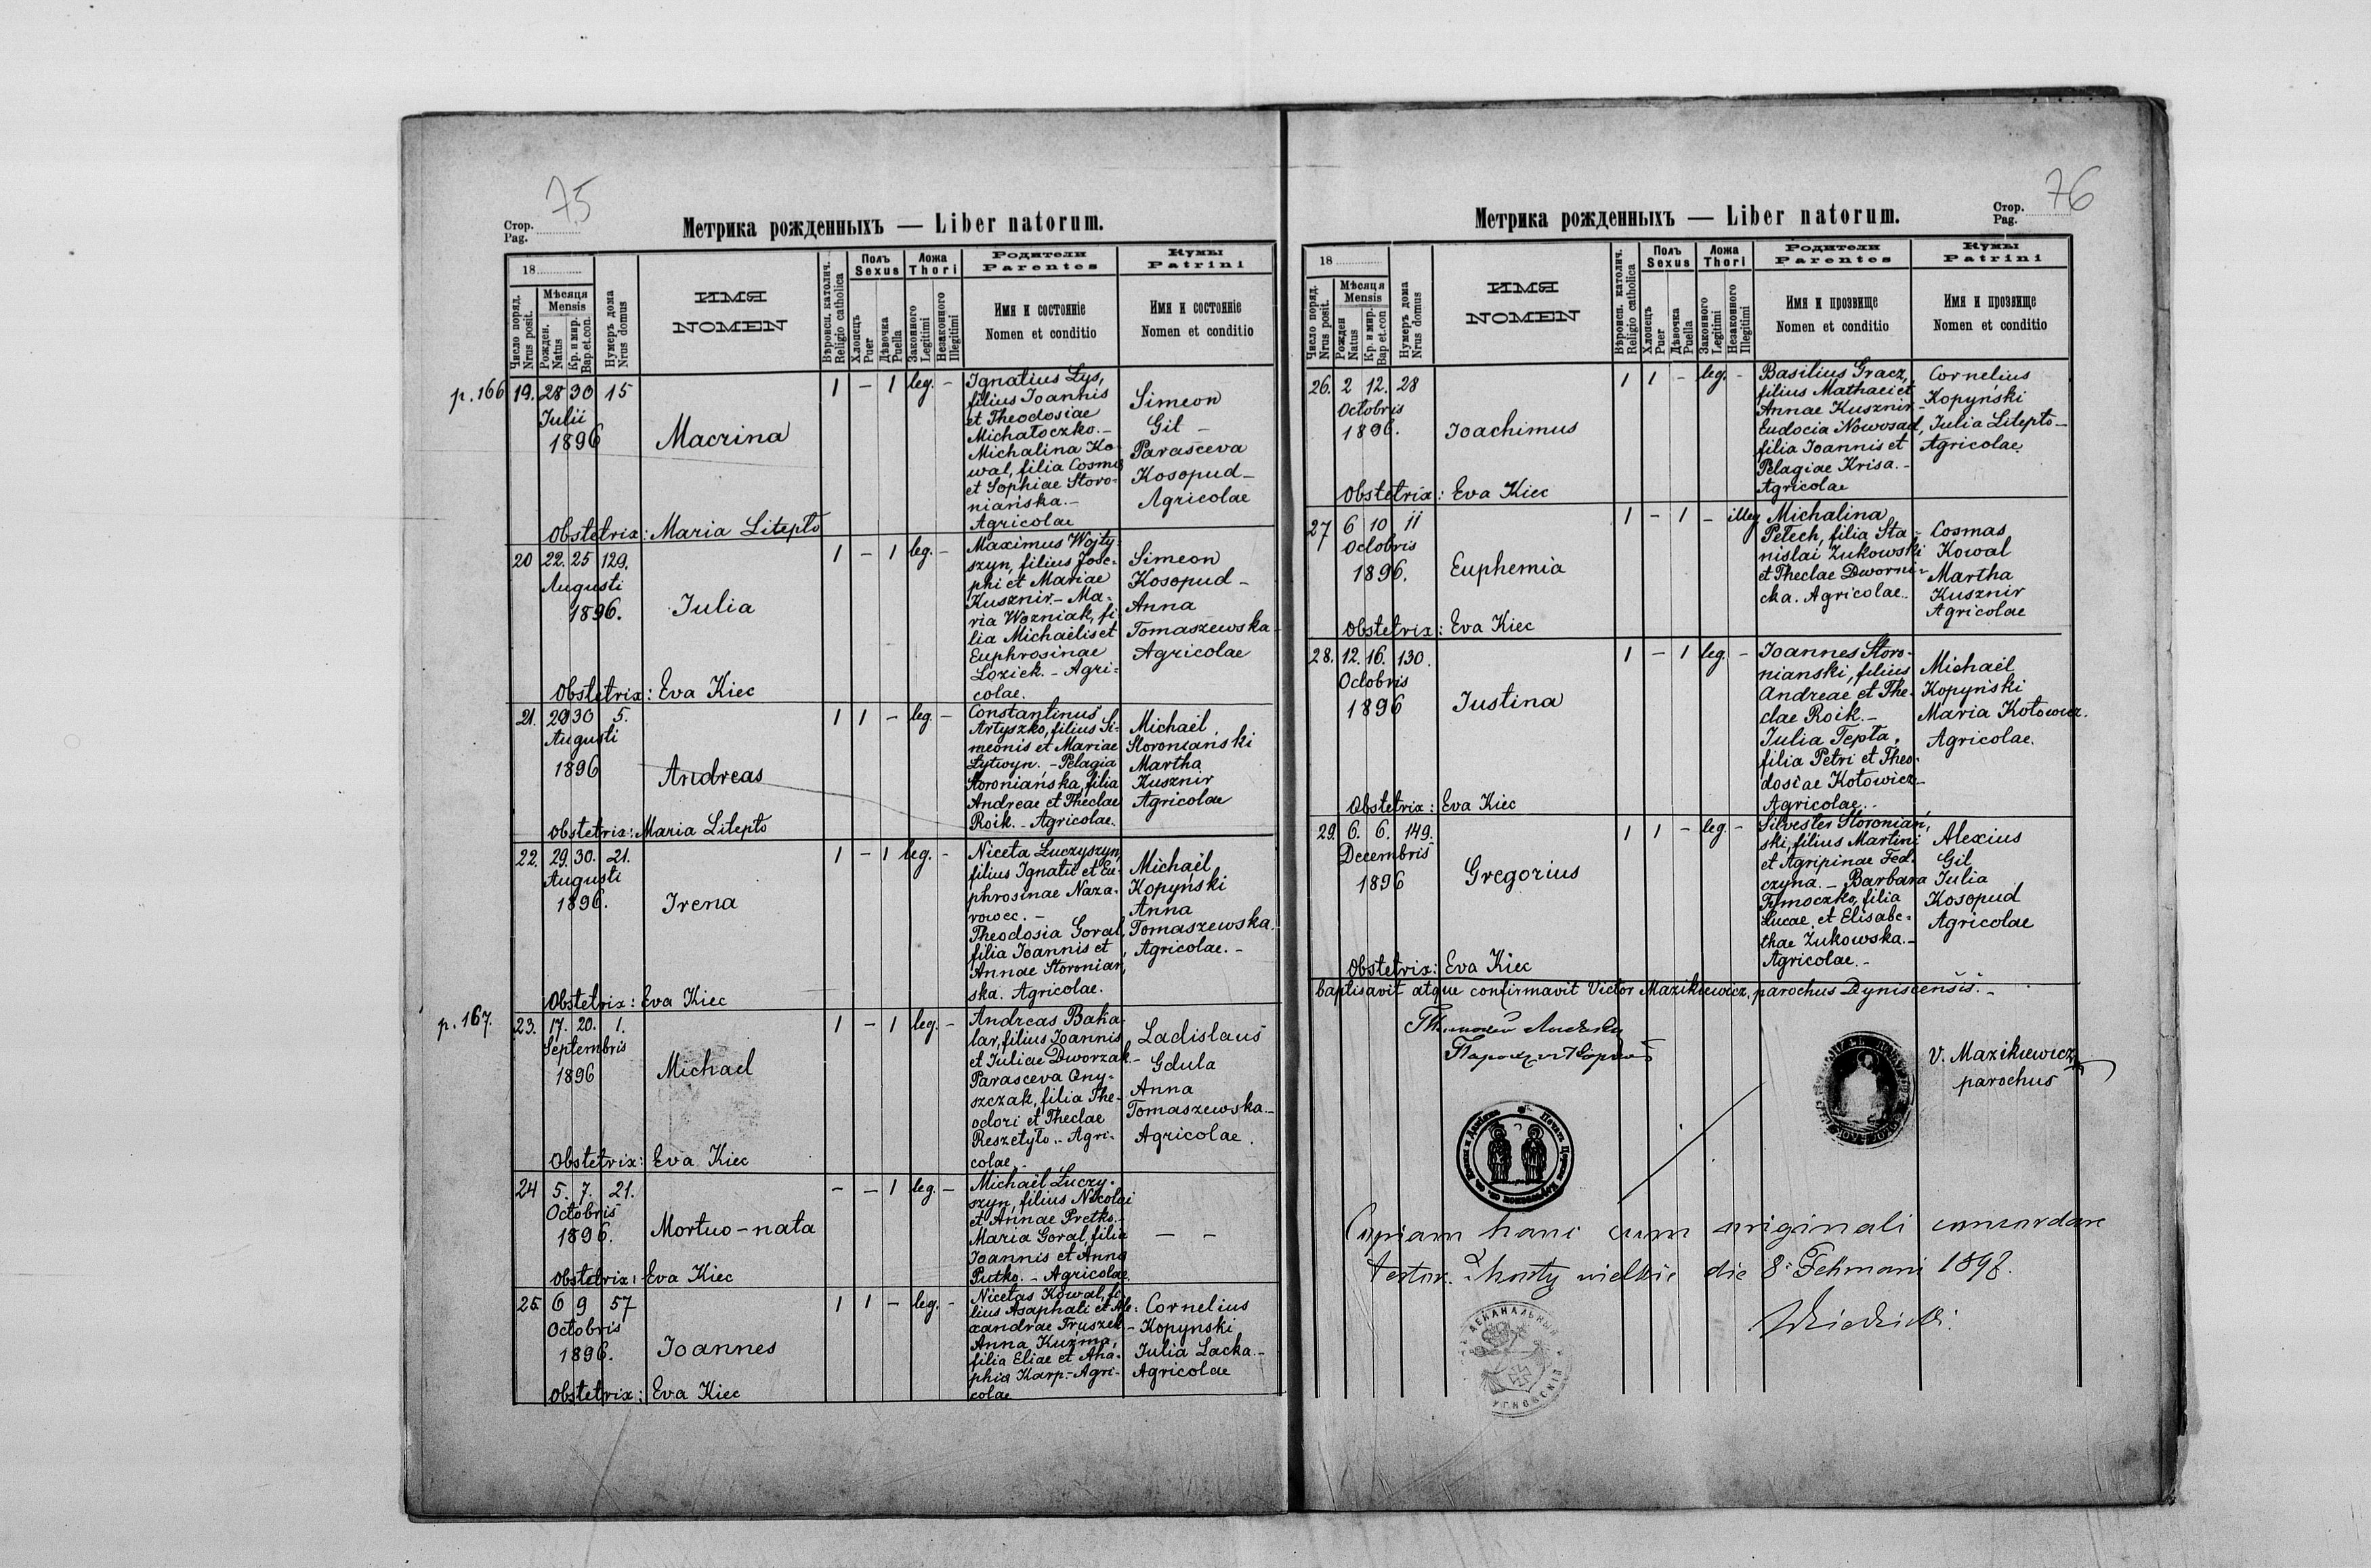 75
Стор.
Pag.
Метрика рожденныхъ — Liber natorum.
18
Число поряд.
Nrus posit.
Мѣсяця
Mensis
Рожден.
Natus
Кр. и мир.
Bap.et.con.
Нумеръ дома
Nrus domus
ИМЯ
NOMEN
Вѣроисп. католич.
Religio catholica
Полъ
Sexus
Хлопецъ
Puer
Дѣвочка
Puella
Ложа
Thori
Законного
Legitimi
Незаконного
Illegitimi
Родители
Parentes
Имя и состояніе
Nomen et conditio
Кумы
Patrini
Имя и состояніе
Nomen et conditio
p. 166
19. 28 30 15
Julii
1896
Macrina
1 - 1 leg. -
Ignatius Łys,
filius Joannis
et Theodosiae
Michałoczko. -
Michalina Ko-
wal, filia Cosmae
et Sophiae Storo-
niańska. -
Agricolae
Simeon
Gil -
Parasceva
Kosopud -
Agricolae
Obstetrix: Maria Litepło
20 22. 25 129.
Augusti
1896.
Julia
1 - 1 leg. -
Maximus Wojty-
szyn, filius Jose-
phi et Mariae
Kusznir. - Ma-
ria Wozniak, fi
lia Michaelis et
Euphrosinae
Lozick. - Agri-
colae.
Simeon
Kosopud -
Anna
Tomaszewska
Agricolae
Obstetrix: Eva Kiec
21. 29 30 5.
Augusti
1896
Andreas
1 1 - leg. -
Constantinus
Artyszko, filius Si-
meonis et Mariae
Łytwyn. - Pelagia
Storoniańska, filia
Andreae et Theclae
Roik. - Agricolae.
Michael
Storonianski
Martha
Kusznir
Agricolae
Obstetrix: Maria Litepło
22. 29. 30. 21.
Augusti
1896.
Irena
1 - 1 leg. -
Niceta Łuczyszyn,
filius Ignatii et Eu-
phrosinae Naza-
rowec. -
Theodosia Goral,
filia Joannis et
Annae Storoniań-
ska. Agricolae.
Michael
Kopyński
Anna
Tomaszewska.
Agricolae. -
Obstetrix: Eva Kiec
p. 167.
23. 17. 20. 1.
Septembris
1896
Michael
1 - 1 leg. -
Andreas Baka-
lar, filius Joannis
et Juliae Dworzak -
Parasceva Ony-
szczak, filia The-
odori et Theclae
Reszetyło. - Agri-
colae. -
Ladislaus
Gdula
Anna
Tomaszewska. -
Agricolae.
Obstetrix: Eva Kiec
24 5. 7. 21.
Octobris
1896.
Mortuo-nata
- - 1 leg. -
Michael Łuczy-
szyn, filius Nicolai
et Annae Pretko. -
Maria Goral, filia
Joannis et Anna
Putko. - Agricolae.
- -
Obstetrix: Eva Kiec
25. 6 9 57
Octobris
1896.
Joannes
1 1 - leg. -
Nicetas Kowal, fi-
lius Asaphati et Ale-
xandrae Fruszek -
Anna Kuźma,
filia Eliae et Aha-
phia Karp. - Agri-
colae
Cornelius
Kopynski
Julia Lacka. -
Agricolae
Obstetrix: Eva Kiec
76
Стор.
Pag.
Метрика рожденныхъ — Liber natorum.
18
Число поряд.
Nrus posit.
Мѣсяця
Mensis
Рожден
Natus
Кр. и мир.
Bap et.con
Нумеръ дома
Nrus domus
ИМЯ
NOMEN
Вѣроисп. католич.
Religio catholica
Полъ
Sexus
Хлопецъ
Puer
Дѣвочка
Puella
Ложа
Thori
Законного
Legitimi
Незаконного
Illegitimi
Родители
Parentes
Имя и прозвище
Nomen et conditio
Кумы
Patrini
Имя и прозвище
Nomen et conditio
26. 2 12. 28
Octobris
1896.
Joachimus
1 1 - leg. -
Basilius Gracz,
filius Mathaei et
Annae Kusznir -
Eudocia Nowosad,
filia Joannis et
Pelagiae Krisa. -
Agricolae
Cornelius
Kopyński
Julia Litepło -
Agricolae.
Obstetrix: Eva Kiec
27 6 10 11
Octobris
1896.
Euphemia
1 - 1 - illeg
Michalina
Petech, filia Sta-
nislai Zukowski
et Theclae Dworni-
cka. Agricolae.
Cosmas
Kowal
Martha
Kusznir
Agricolae
Obstetrix: Eva Kiec
28. 12. 16. 130.
Octobris
1896
Justina
1 - 1 leg. -
Joannes Storo-
nianski, filius
Andreae et The-
clae Roik. -
Julia Tepła,
filia Petri et Theo-
dosiae Kotowicz -
Agricolae. -
Michael
Kopyński
Maria Kotowicz.
Agricolae.
Obstetrix: Eva Kiec
29. 6. 6. 149.
Decembris
1896
Gregorius
1 1 - leg. -
Silvester Storoniań-
ski, filius Martini
et Agripinae Fed-
czyna. - Barbara
Tymoczko, filia
Lucae et Elisabe-
thae Zukowska. -
Agricolae. -
Alexius
Gil
Julia
Kosopud
Agricolae
Obstetrix: Eva Kiec
baptisavit atque confirmavit Victor Mazikiewicz, parochus Dyniscensis. -
V. Mazikiewicz
parochus
Copiam hanc cum originali concordare
testor. die 8. 1897.
ДЕКАНАЛЬНЫЙ
УГНОВСКІЙ